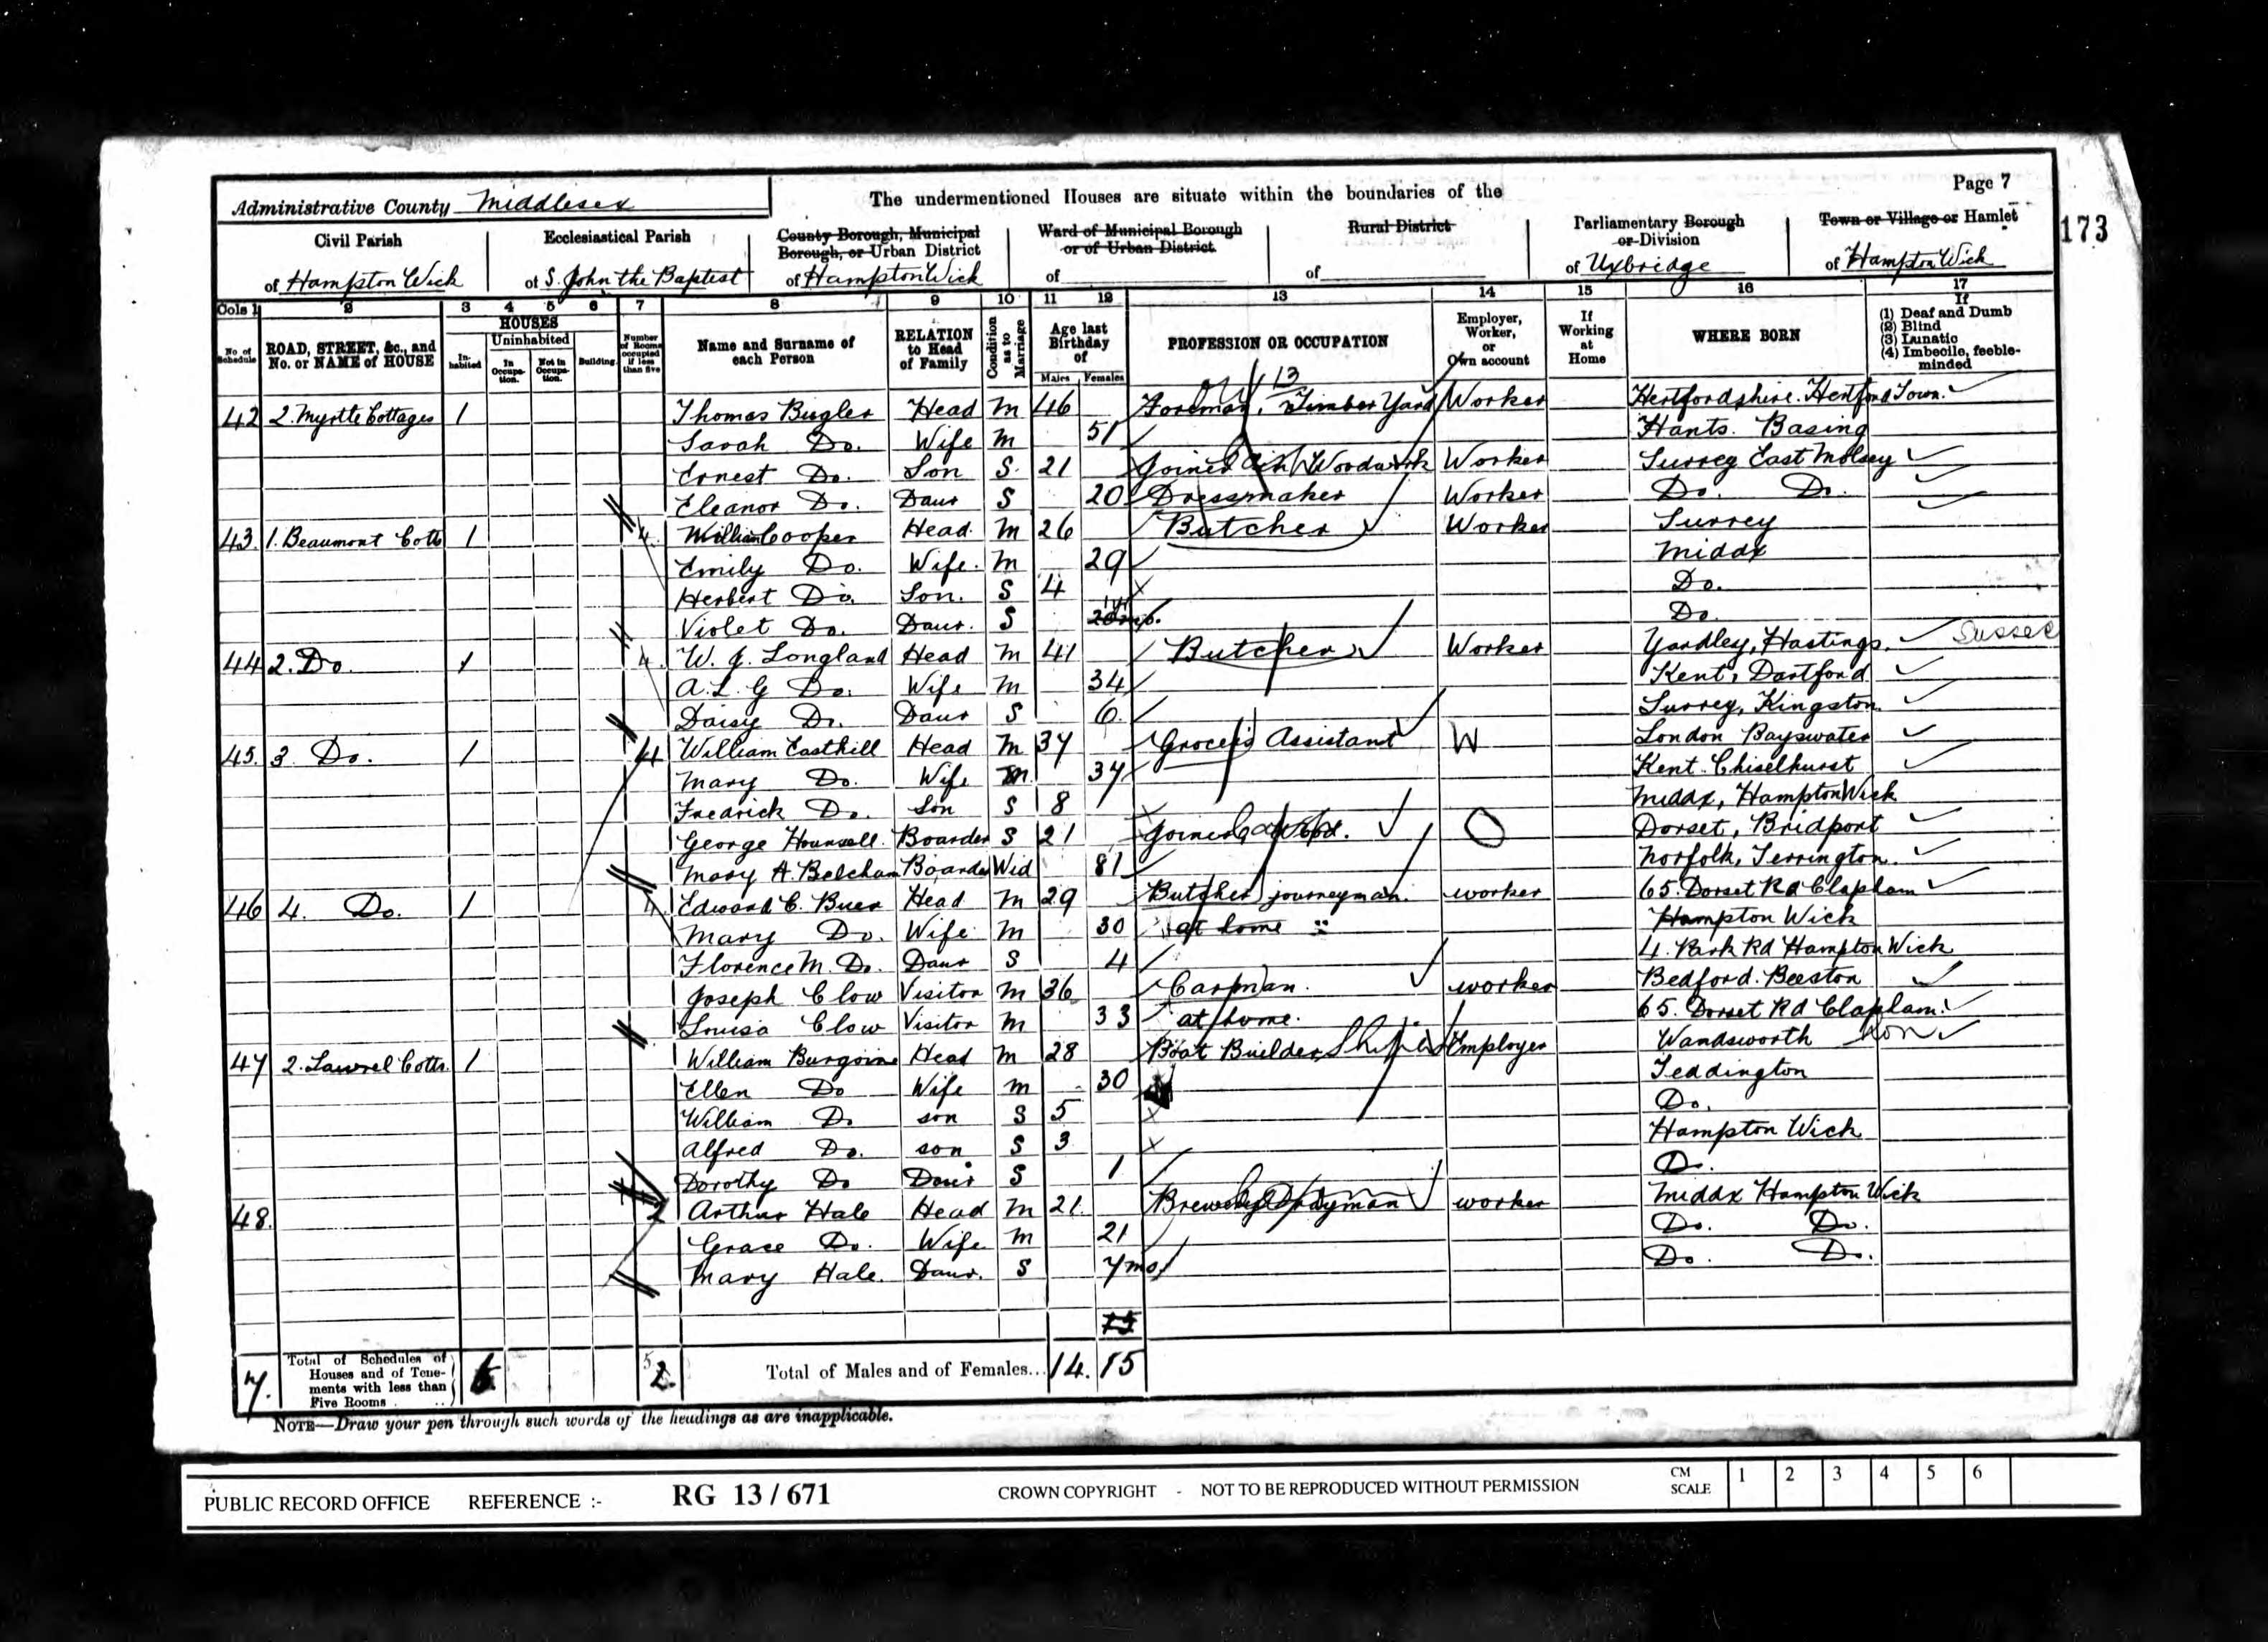 Page 7
Administrative County Middlesex The undermentioned Houses are situate within the boundaries of the
173
Civil Parish Ecclesiastical Parish County Borough, Municipal Borough, or Urban District Ward of Municipal Borough or of Urban District Rural District Parliamentary Borough or Division Town or Village or Hamlet
of Hampton Wick of S. John the Baptist of Hampton Wick of of of Uxbridge of Hampton Wick
Cols 1 2 3 4 5 6 7 8 9 10 11 12 13 14 15 16 17
No of Schedule ROAD, STREET, &c., and No. or NAME of HOUSE HOUSES Inhabited Uninhabited In Occupation. Not in Occupation. Building Number of Rooms occupied if less than five Name and Surname of each Person RELATION to Head of Family Condition as to Marriage Age last Birthday of Males Females PROFESSION OR OCCUPATION Employer, Worker, or Own account If Working at Home WHERE BORN If (1) Deaf and Dumb (2) Blind (3) Lunatic (4) Imbecile, feeble-minded
13
42 2. Myrtle Cottages 1 Thomas Bugler Head M 46 Foreman, Timber Yard Worker Hertfordshire. Hertford Town.
Sarah Do. Wife M 51 Hants. Basing
Ernest Do. Son S. 21 Joiner Woodwork Worker Surrey East Molsey
Eleanor Do. Daur S 20 Dressmaker Worker Do. Do.
43. 1. Beaumont Cotts 1 4. William Cooper Head. M 26 Butcher Worker Surrey
Emily Do. Wife. M 29 Middx
Herbert Do. Son. S 4 Do.
Violet Do. Daur. S Do.
44 2. Do. 1 4. W. J. Longland Head M 41 Butcher Worker Yardley, Hastings. Sussex
A. L. G Do. Wife M 34 Kent, Dartford
Daisy Do. Daur S 6. Surrey, Kingston
45. 3. Do. 1 4 William Easthill Head M 37 Grocers Assistant W London Bayswater
Mary Do. Wife M 37 Kent. Chiselhurst
Fredrick Do. Son S 8 Middx, Hampton Wick
George Hounsell. Boarder S 21 Joiner O Dorset, Bridport
Mary A. Belcham Boarder Wid 81 Norfolk, Terrington.
46 4. Do. 1 4 Edward C. Buer Head M 29 Butcher journeyman. worker 65. Dorset Rd Clapham
Mary Do. Wife. M 30 at home Hampton Wick
Florence M. Do. Daur S 4 4. Park Rd Hampton Wick
Joseph Clow Visitor M 36 Carman. worker Bedford. Beeston
Louisa Clow Visitor M 33 at home. 65. Dorset Rd Clapham.
47 2. Laurel Cotts. 1 William Burgoine Head M 28 Boat Builder Employer Wandsworth Lon
Ellen Do Wife M 30 Teddington
William Do son S 5 Do.
Alfred Do. son S 3 Hampton Wick
Dorothy Do Daur S 1 Do.
48. 2 Arthur Hale Head M 21. Brewery Drayman worker Middx Hampton Wick
Grace Do. Wife M 21 Do. Do.
Mary Hale. Daur. S 7 mos Do. Do.
7. Total of Schedules of Houses and of Tenements with less than Five Rooms 6 2 Total of Males and of Females... 14. 15
NOTE—Draw your pen through such words of the headings as are inapplicable.
PUBLIC RECORD OFFICE REFERENCE :- RG 13 / 671 CROWN COPYRIGHT - NOT TO BE REPRODUCED WITHOUT PERMISSION CM SCALE 1 2 3 4 5 6